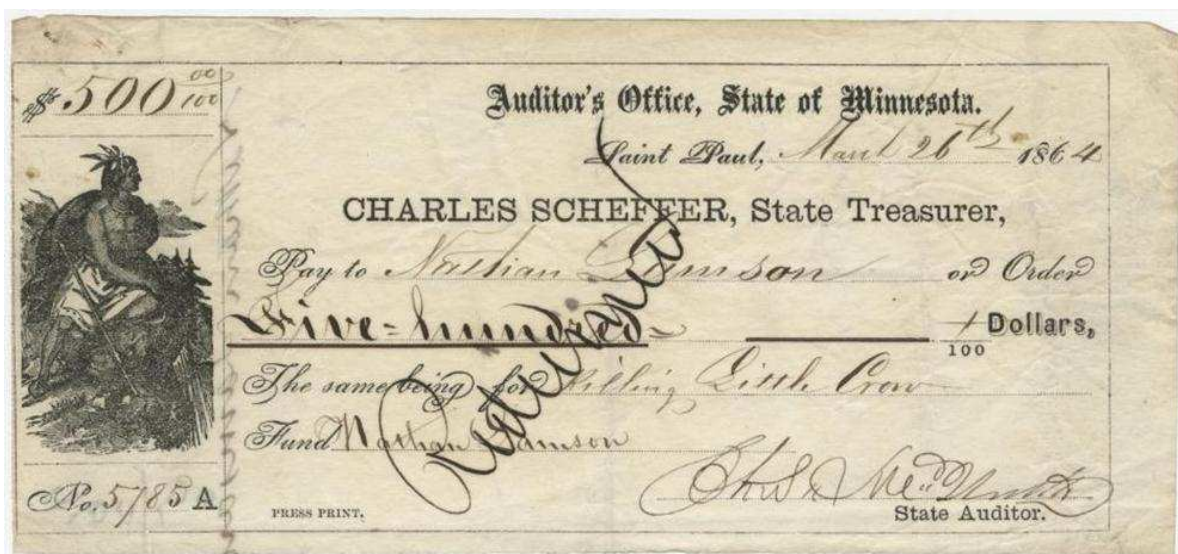 $500 00/100
Auditor's Office, State of Minnesota.
Saint Paul, March 26th 1864
CHARLES SCHEFFER, State Treasurer,
Pay to Nathan Lamson or Order
Five-hundred 100 Dollars,
The same being for killing Little Crow
Fund Nathan Lamson
No. 5785 A
PRESS PRINT.
State Auditor.